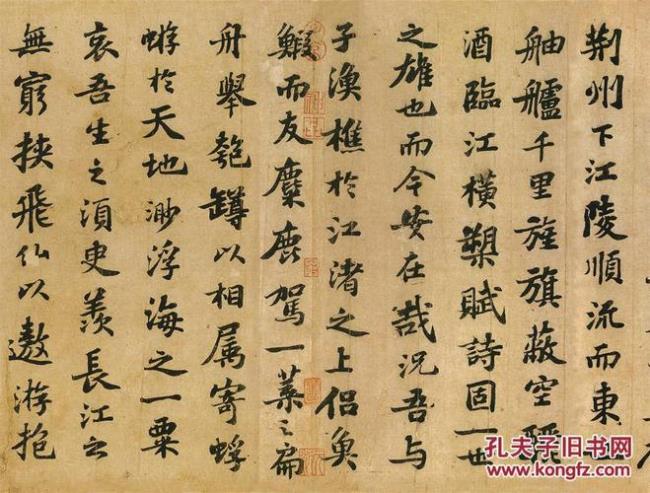 荆州下江陵順流而東也
舳艫千里旌旗蔽空釃
酒臨江橫槊賦詩固一世
之雄也而今安在哉況吾与
子漁樵於江渚之上侶魚
鰕而友麋鹿駕一葉之扁
舟舉匏罇以相属寄蜉
蝣於天地渺浮海之一粟
哀吾生之須臾羨長江之
無窮挾飛仙以遨游抱
孔子旧书网
www.kongfz.com